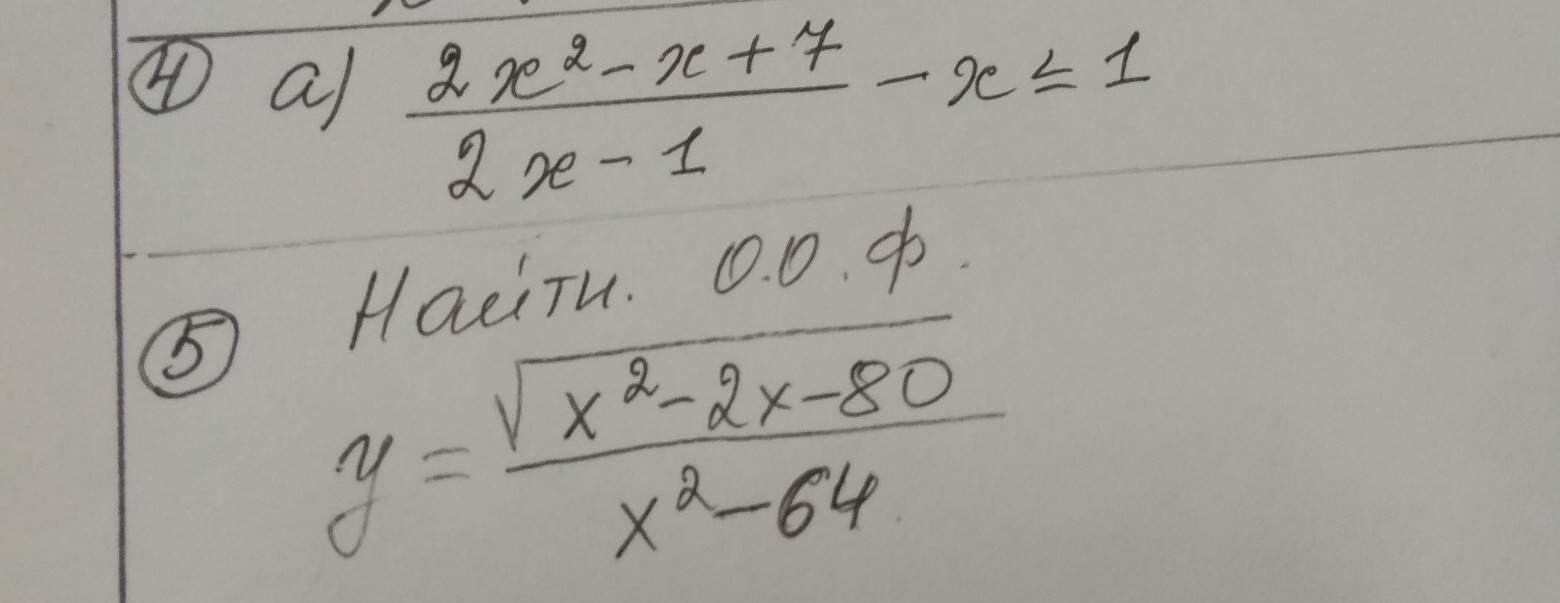 ④ а) \frac{2x^2 - x + 7}{2x - 1} - x ≤ 1
⑤ Найти. О.О.Ф.
y = \frac{\sqrt{x^2 - 2x - 80}}{x^2 - 64}